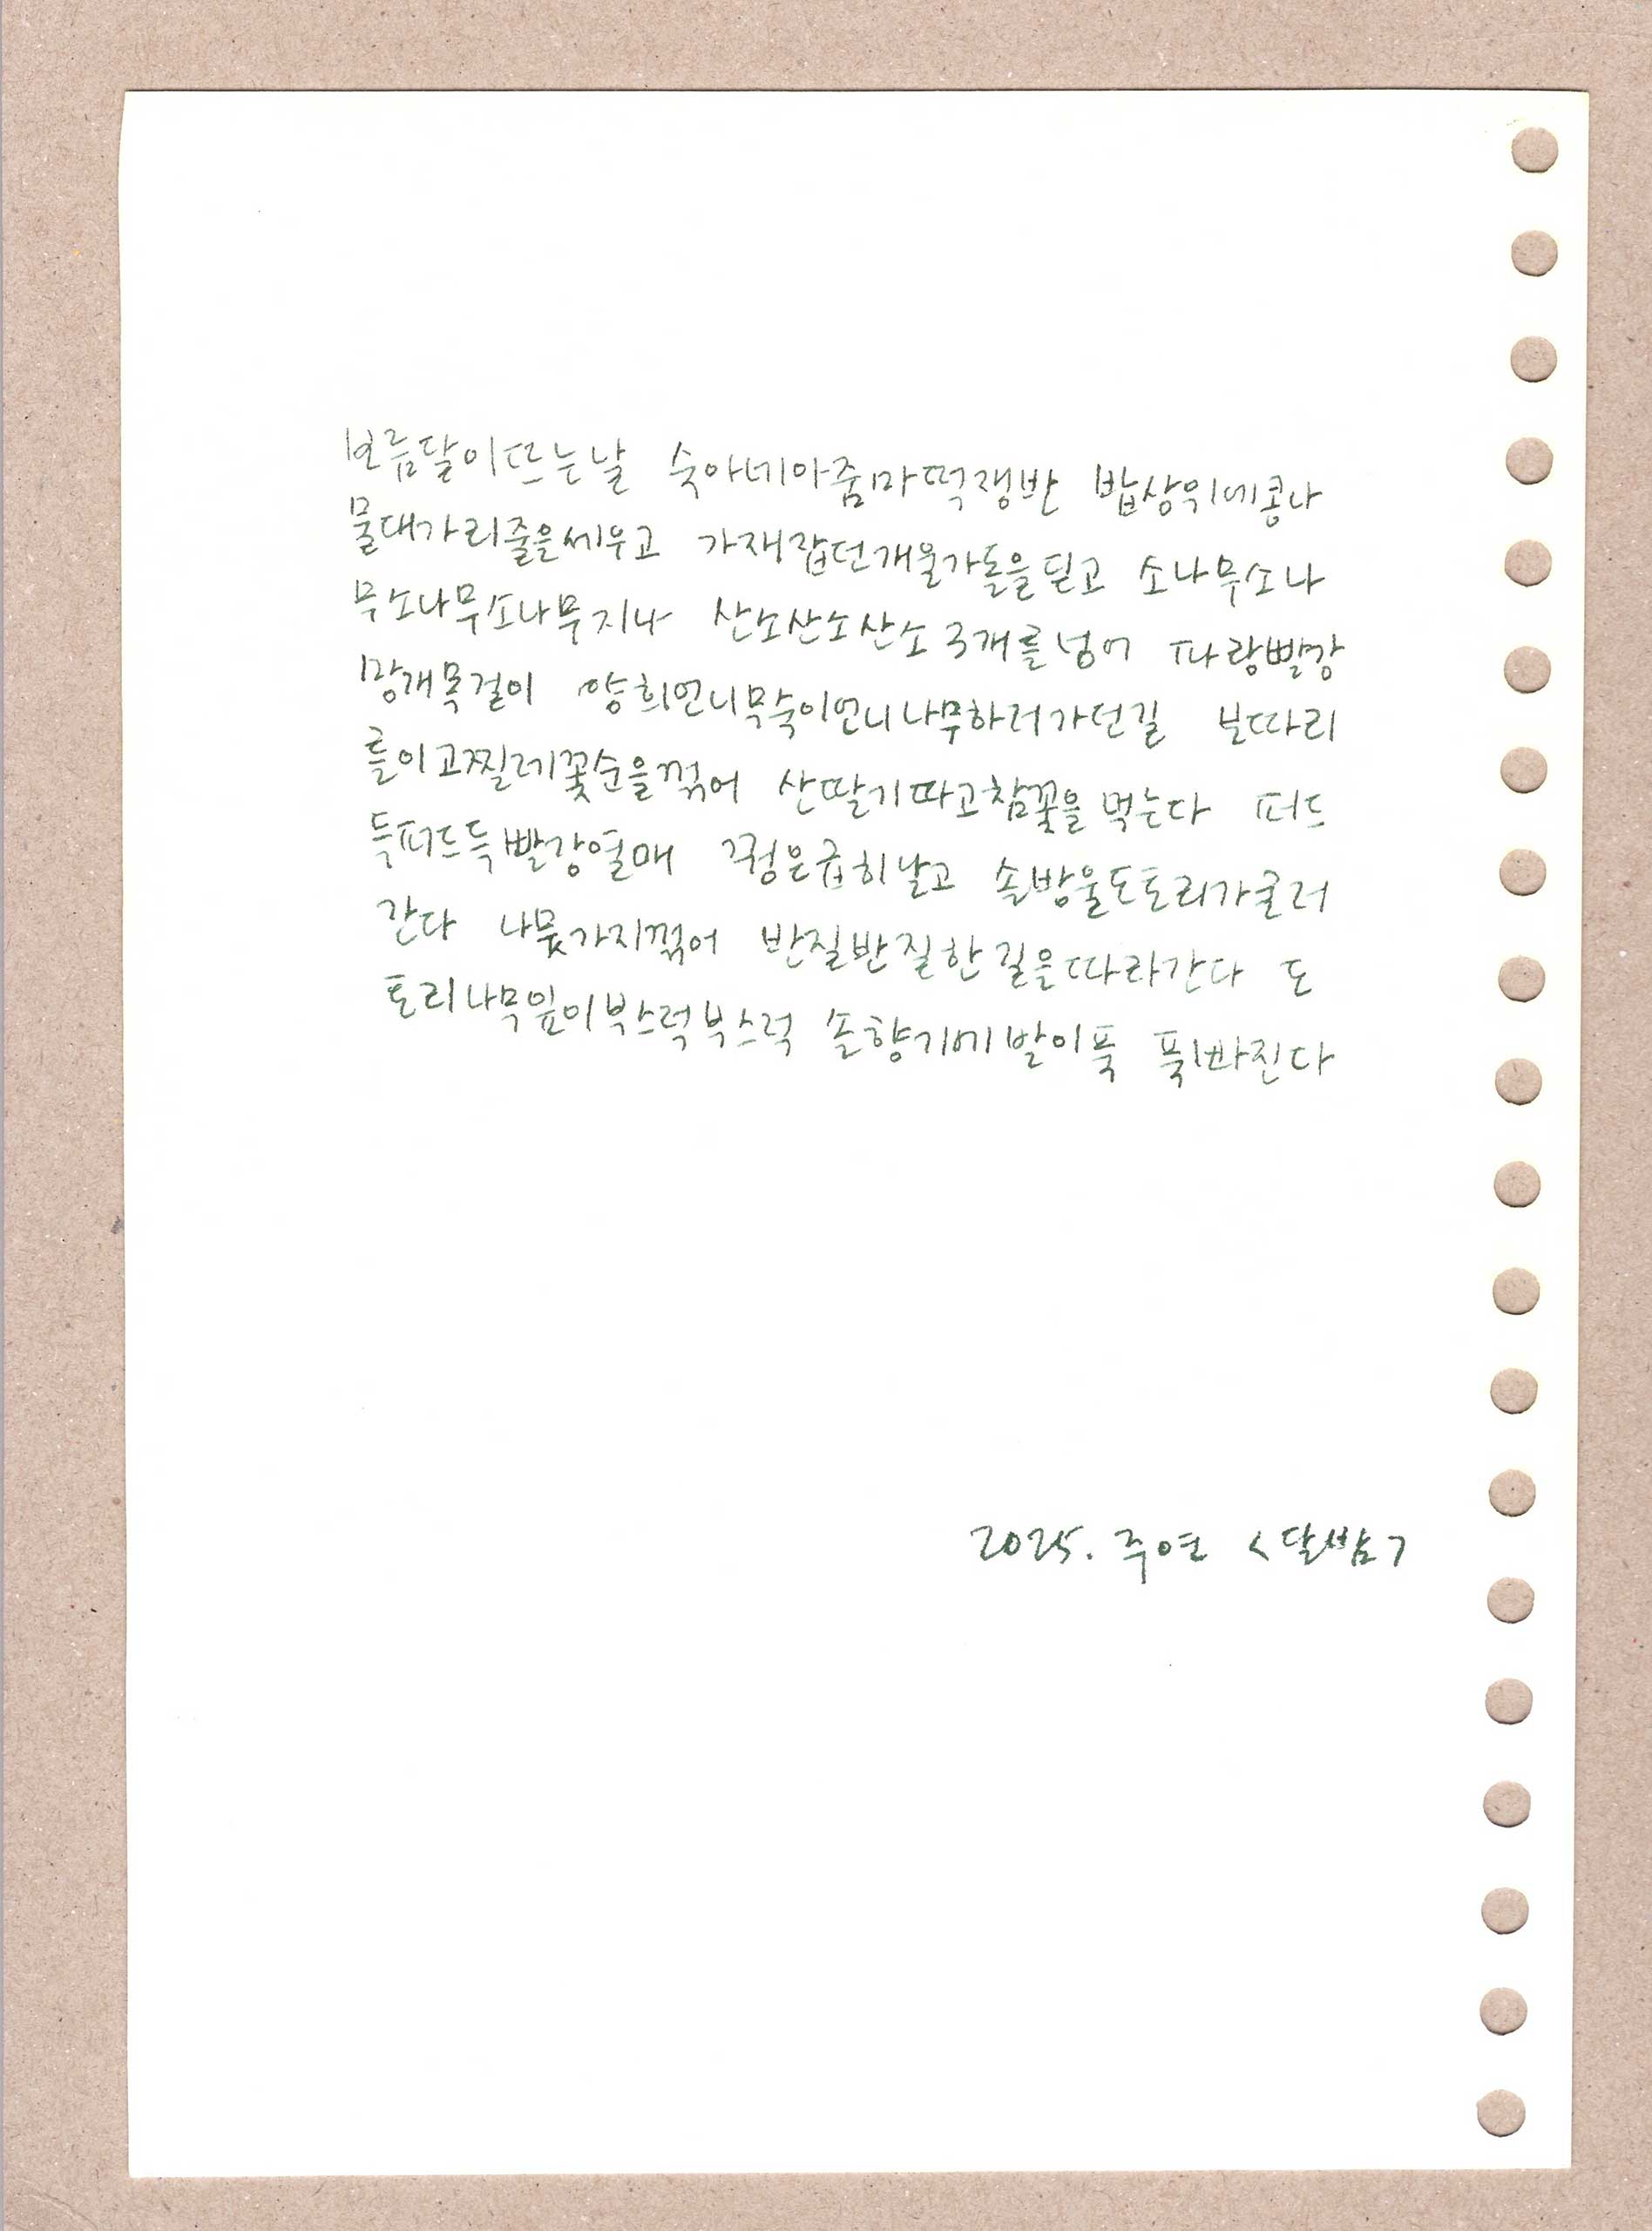 보름달이뜨는날 숙아네아줌마떡쟁반 밥상위에콩나
물대가리줄을세우고 가재잡던개울가돌을딛고 소나무소나
무소나무소나무지나 산소산소산소3개를넘어 파랑빨강
망개목걸이 양희언니묵숙이언니나무하러가던길 보따리
를이고찔레꽃순을꺾어 산딸기따고참꽃을먹는다 퍼드
득퍼드득빨강열매 꿩은급히날고 솔방울도토리가굴러
간다 나뭇가지꺾어 반질반질한길을따라간다 도
토리나무잎이부스럭부스럭 솔향기에발이푹 푹빠진다
2025. 주연 <달밤>